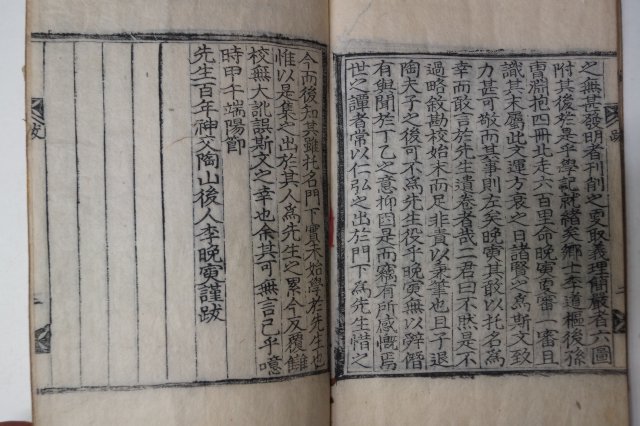 之無甚發明者刊削之更取義理簡嚴者六圖
附其後於是乎學記就緒矣鄉士李道樞後孫
曺爀抱四冊北走六百里命晚寅更審一審且
識其末屬此文運方衰之日諸賢之爲斯文致
力甚可敬而其事則左矣晚寅其敢以托名爲
幸而敢言於先生遺卷者哉二君曰不然是不
過略敘勘校始末而足非責以秉筆也且子退
陶夫子之後可不爲先生役乎晚寅無以辭僭
有與聞於丁乙之意抑因是而竊有所感慨焉
世之譚者常以仁弘之出於門下爲先生惜之
今而後知其雖托名門下實未始學於先生也
惟以是集之出於其人爲先生之累今反覆讎
校無大訛誤斯文之幸也余其可無言已乎噫
時甲午端陽節
先生百年神交陶山後人李晚寅謹跋
跋
跋